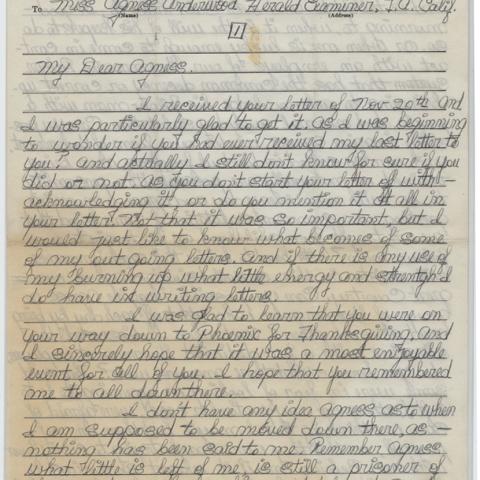 To Miss Agness Underwood Herald Examiner, L.A. Calif.
(Name) (Address)
1
My Dear Agness.
I received your letter of Nov 20th and
I was particularly glad to get it as I was beginning
to wonder if you had ever received my last letter to
you? And actually I still don't know for sure if you
did or not as you don't start your letter off with-
acknowledging it, or do you mention it at all in
your letter. Not that it was so important, but I
would just like to know what becomes of some
of my out going letters. And if there is any use of
my burning up what little energy and strength I
do have in writing letters.
I was glad to learn that you were on
your way down to Phoenix for Thanksgiving. And
I sincerely hope that it was a most enjoyable
event for all of you. I hope that you remembered
me to all down there.
I don't have any idea Agness as to when
I am supposed to be moved down there, as -
nothing has been said to me. Remember Agness
what little is left of me, is still a prisoner of